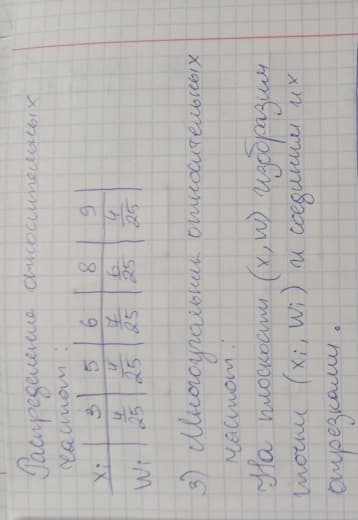 Распределение относительных
частот:
Xi | 3 | 5 | 6 | 8 | 9 |
Wi | 4/25 | 4/25 | 7/25 | 6/25 | 4/25 |
3) Многоугольник относительных
частот:
На плоскости (x, W) изобразим
точки (xi, Wi) и соединим их
отрезками.